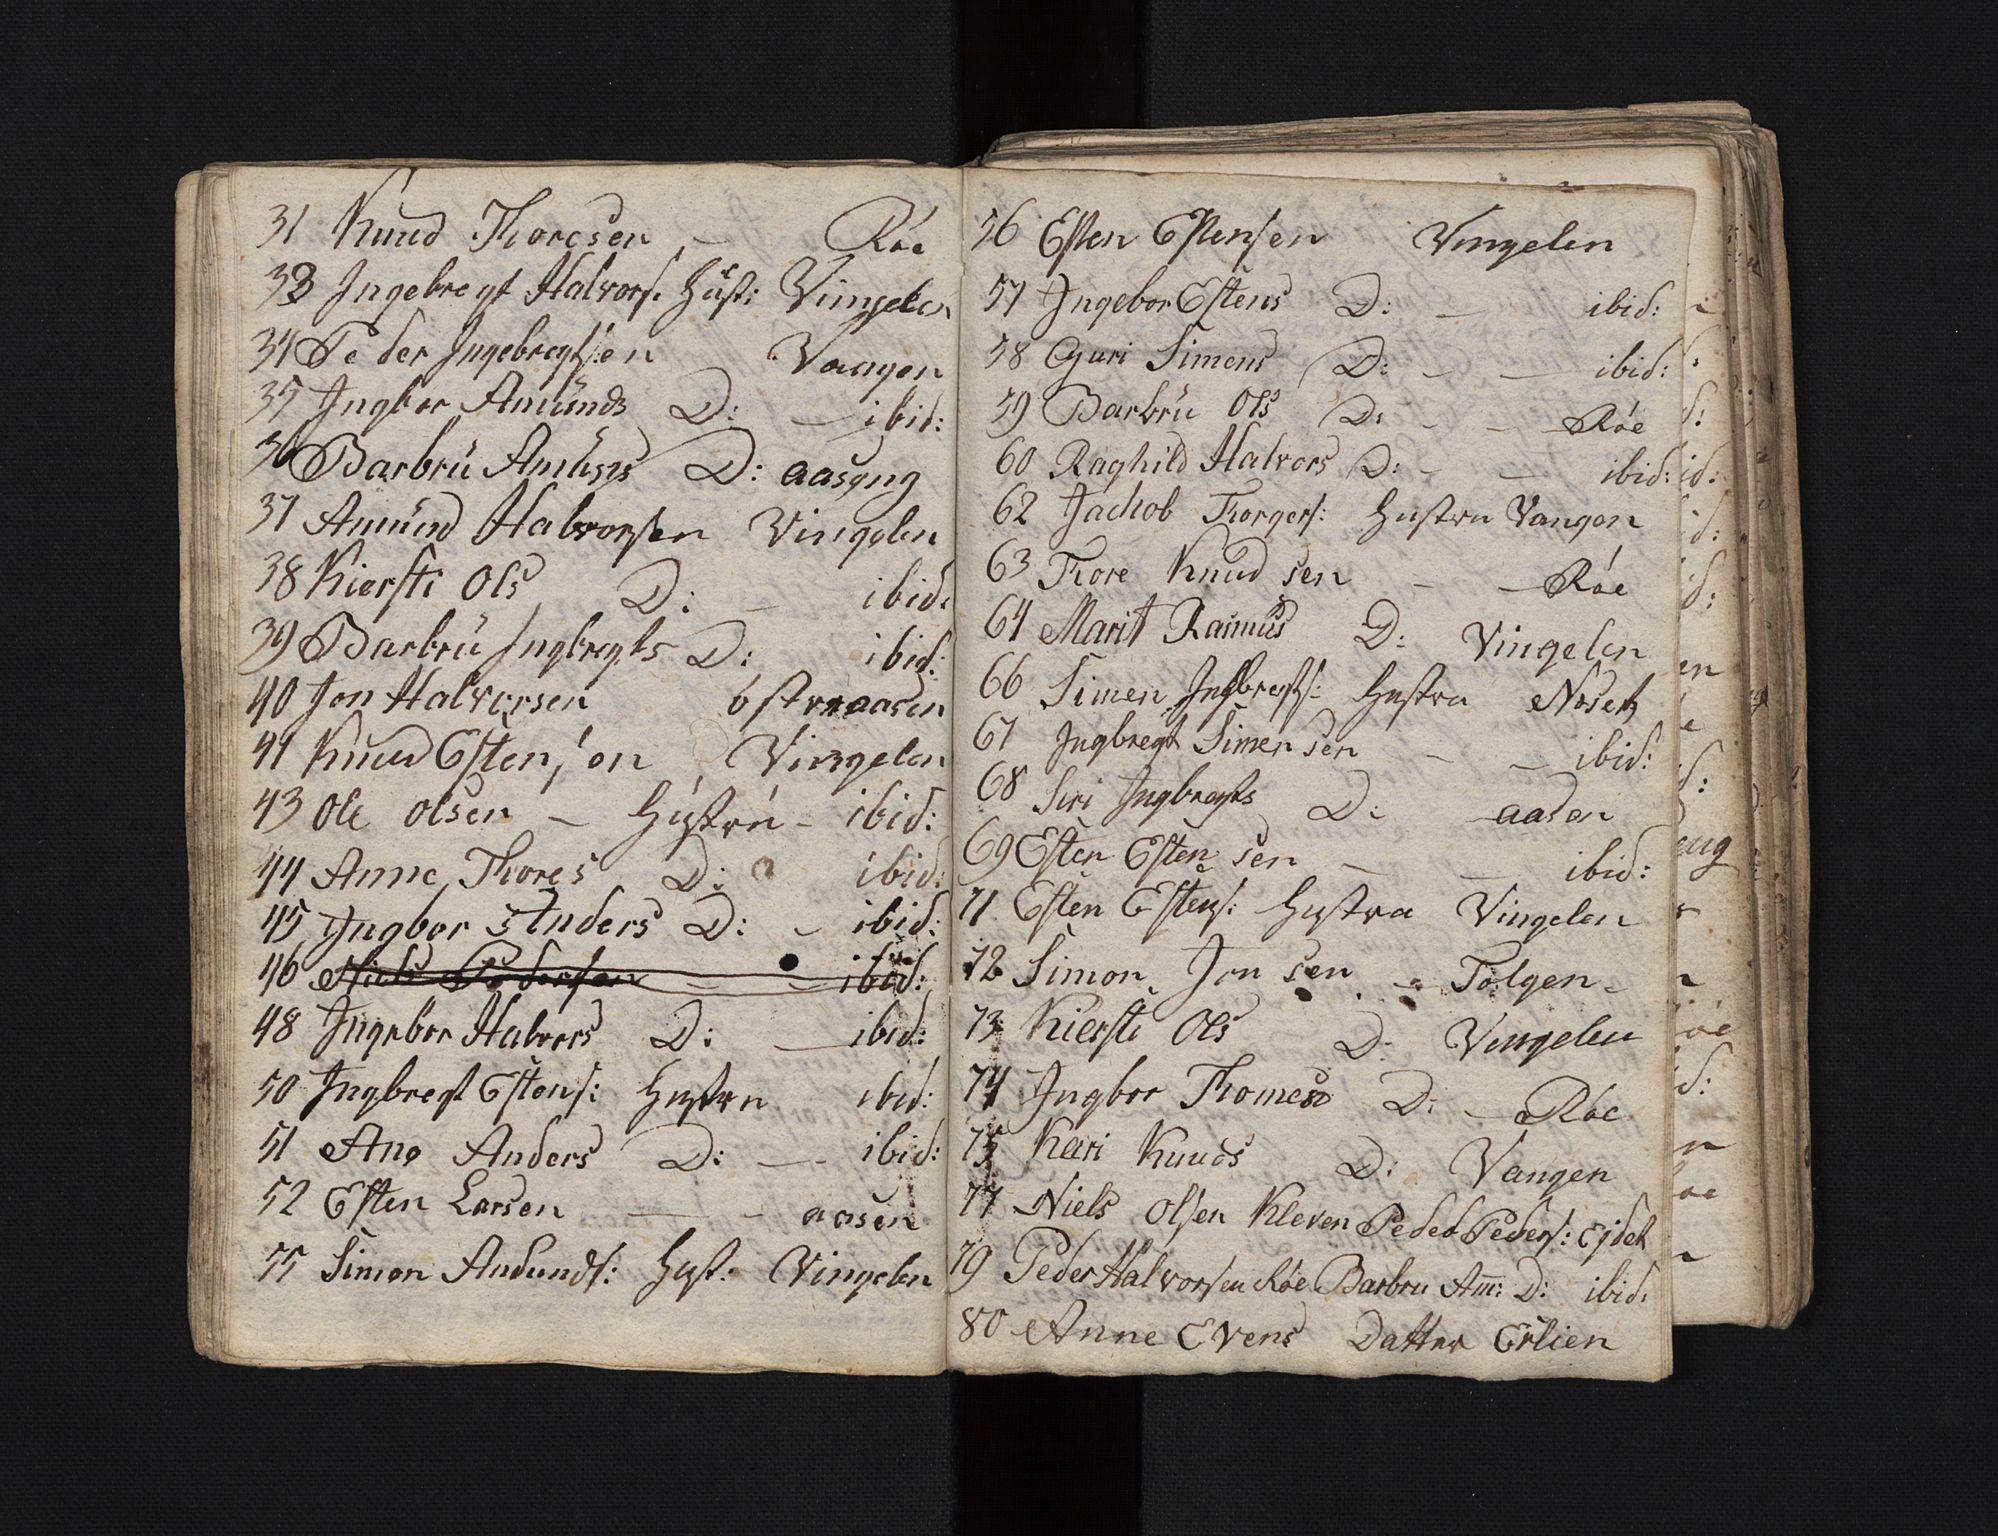 31 Knud Thoresen — Röe
33 Ingebregt Halvors: Hust: Vingelen
34 Peder Ingebregtsen Vaagen
35 Ingbor Amünds D: — ibid:
36 Barbrü D: aaseng
37 Amünd Halvorsen Vingelen
38 Kiersti Ols D: — ibid:
39 Barbrü Ingbregts D: ibid:
40 Jon Halvorsen östreaasen
41 Knud Estensen Vingelen
43 Ole Olsen — Hústrú – ibid:
44 Anne Thores D: ibid:
45 Ingbor Anders D: – ibid:
46 Niels Pedersen – – ibid:
48 Ingebor Halvors D: — ibid:
50 Ingbregt Estens: Hustru ibid:
51 Ane Anders D: — ibid:
52 Esten Larsen — – aasen
55 Simon Amunds: Hust: Vingelen
56 Esten Estensen Vingelen
57 Ingebor Estens D: — ibid:
58 Guri Simens D: – — ibid:
59 Barbrü Ols D: – — Röe
60 Raghild Halvors D: – — ibid:
62 Jachob Thorgers: Hustru Vangen
63 Thore Knudsen – — Röe
64 Marit Rasmus D: Vingelen
66 Simen Ingbregts: Hustru
67 Ingbregt Simensen – — ibid:
68 Siri Ingbregts D: aasen
69 Esten Estensen — — ibid:
71 Esten Estens: Hustru Vingelen
72 Simon Jonsen – Tolgen
73 Kiersti Ols D: Vingelen
74 Ingbor Thomes D: — Röe
75 Kari Knuds D: Vangen
77 Niels Olsen Kleven Peder Peders: Ejdet
79 Peder Halvorsen Röe Barbru Am: D: ibid:
80 Anne Evens Datter Erlien